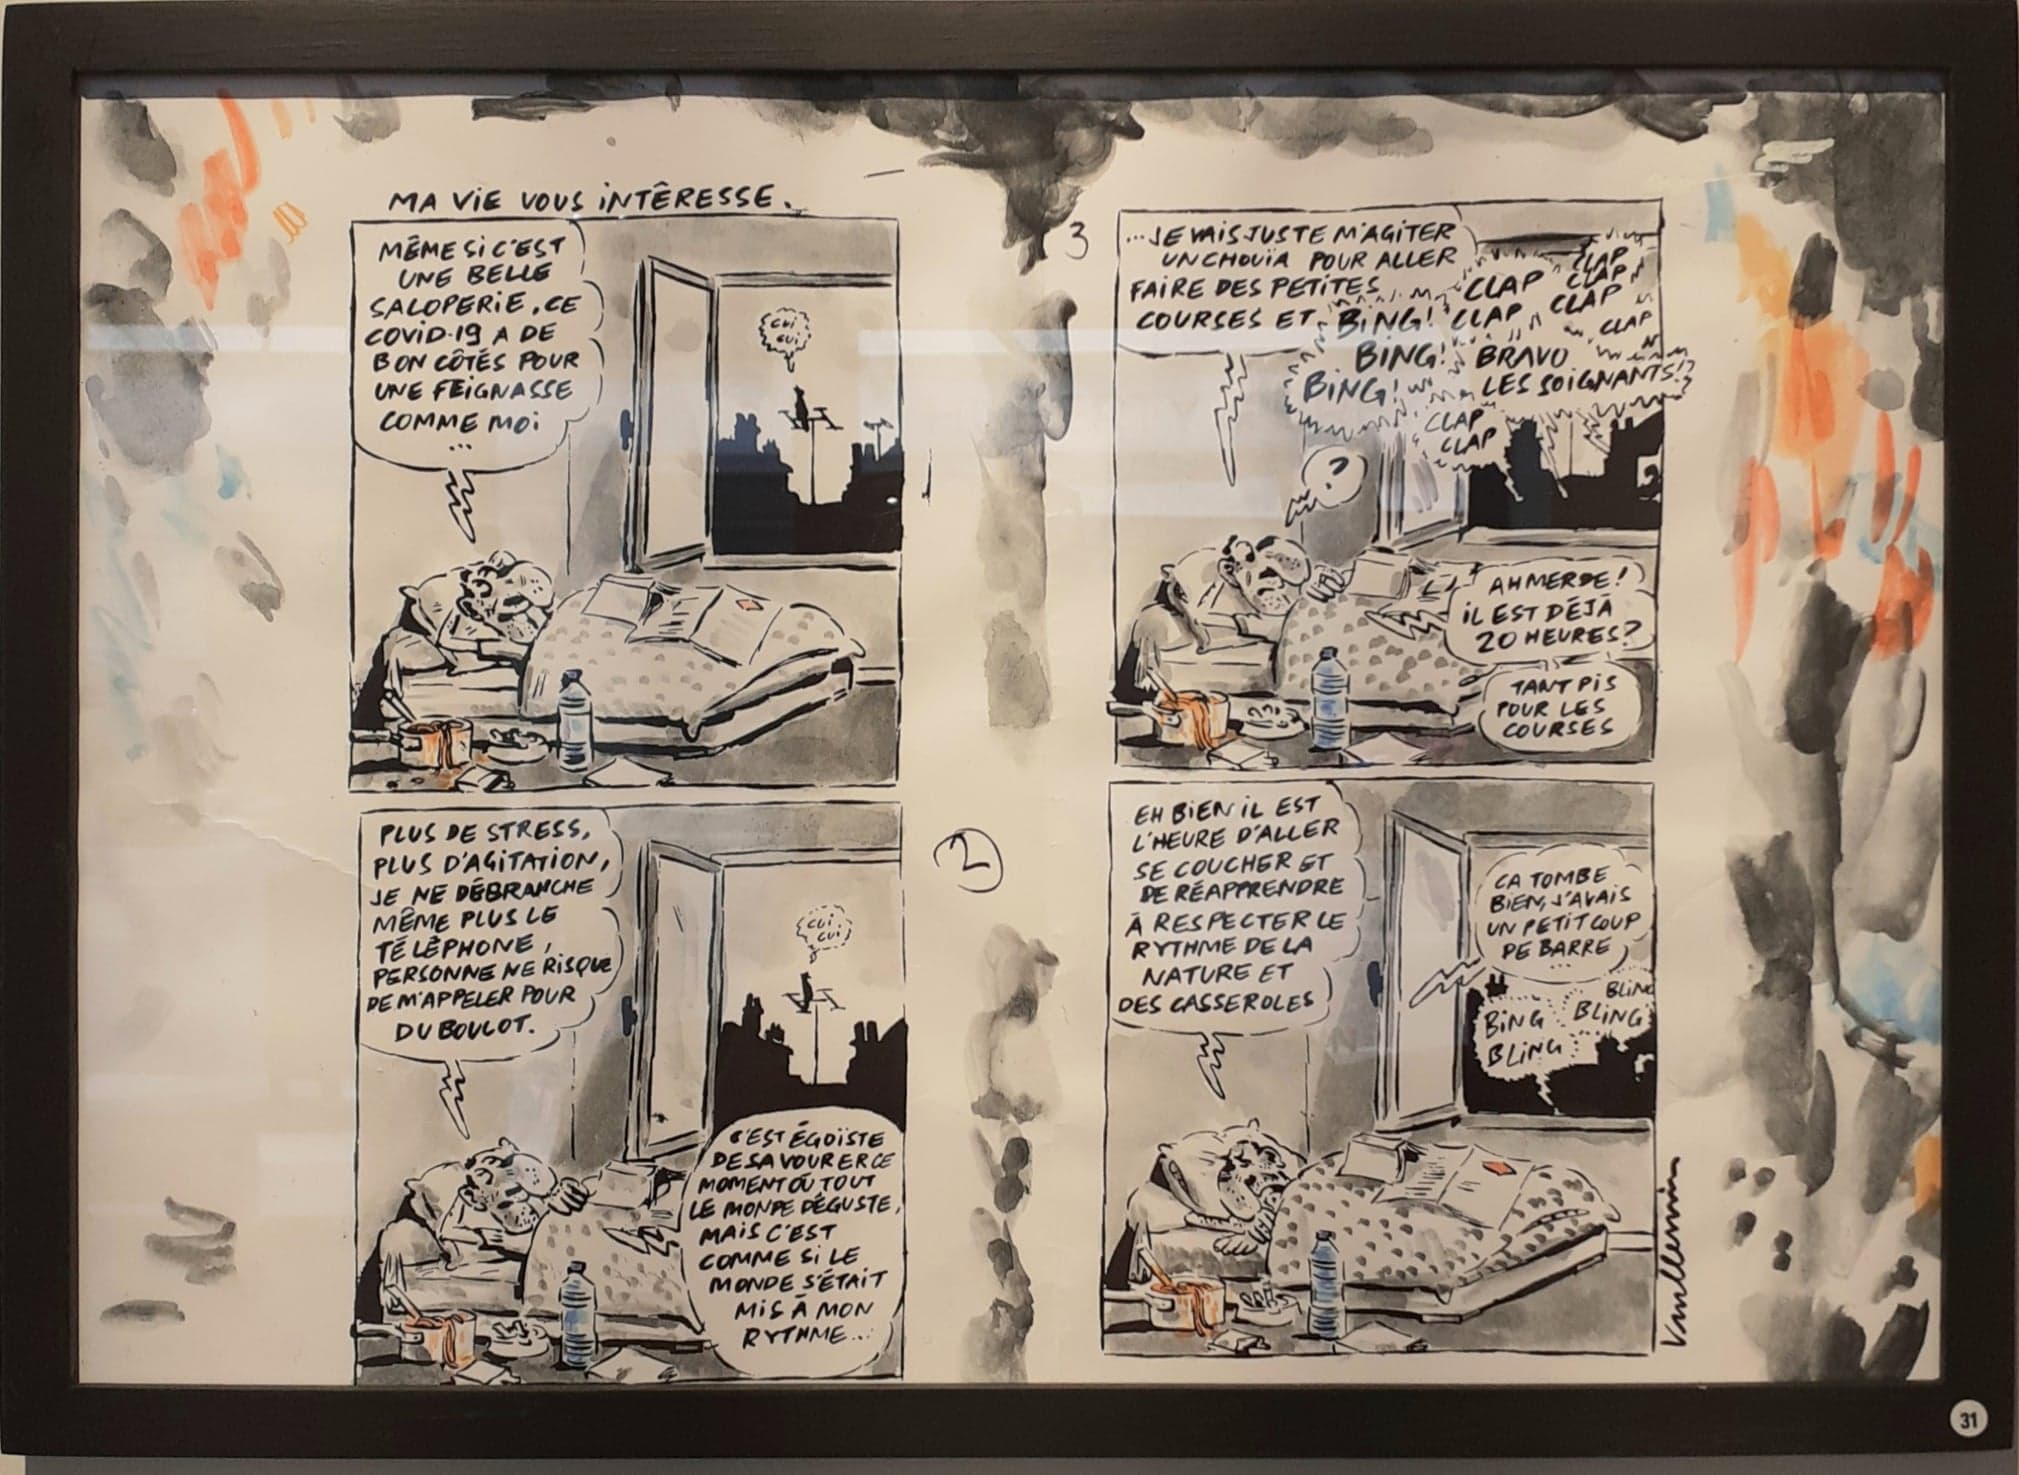 MA VIE VOUS INTÊRESSE.
MÊME SI C'EST
UNE BELLE
SALOPERIE, CE
COVID-19 A DE
BON CÔTÉS POUR
UNE FEIGNASSE
COMME MOI
...
CUI
CUI
PLUS DE STRESS,
PLUS D'AGITATION,
JE NE DÉBRANCHE
MÊME PLUS LE
TÉLÉPHONE,
PERSONNE NE RISQUE
DE M'APPELER POUR
DU BOULOT.
CUI
CUI
C'EST ÉGOÏSTE
DE SAVOURER CE
MOMENT OÙ TOUT
LE MONDE DÉGUSTE,
MAIS C'EST
COMME SI LE
MONDE S'ÉTAIT
MIS À MON
RYTHME...
2
3
...JE VAIS JUSTE M'AGITER
UN CHOUÏA POUR ALLER
FAIRE DES PETITES
COURSES ET
BING!
BING!
BING!
CLAP
CLAP
CLAP
CLAP
CLAP
CLAP
BRAVO
LES SOIGNANTS!?
CLAP
CLAP
?
AH MERDE!
IL EST DÉJÀ
20 HEURES?
TANT PIS
POUR LES
COURSES
EH BIEN IL EST
L'HEURE D'ALLER
SE COUCHER ET
DE RÉAPPRENDRE
À RESPECTER LE
RYTHME DE LA
NATURE ET
DES CASSEROLES
CA TOMBE
BIEN, J'AVAIS
UN PETIT COUP
DE BARRE
...
BLING
BING BLING
BLING
Vuillemin
31